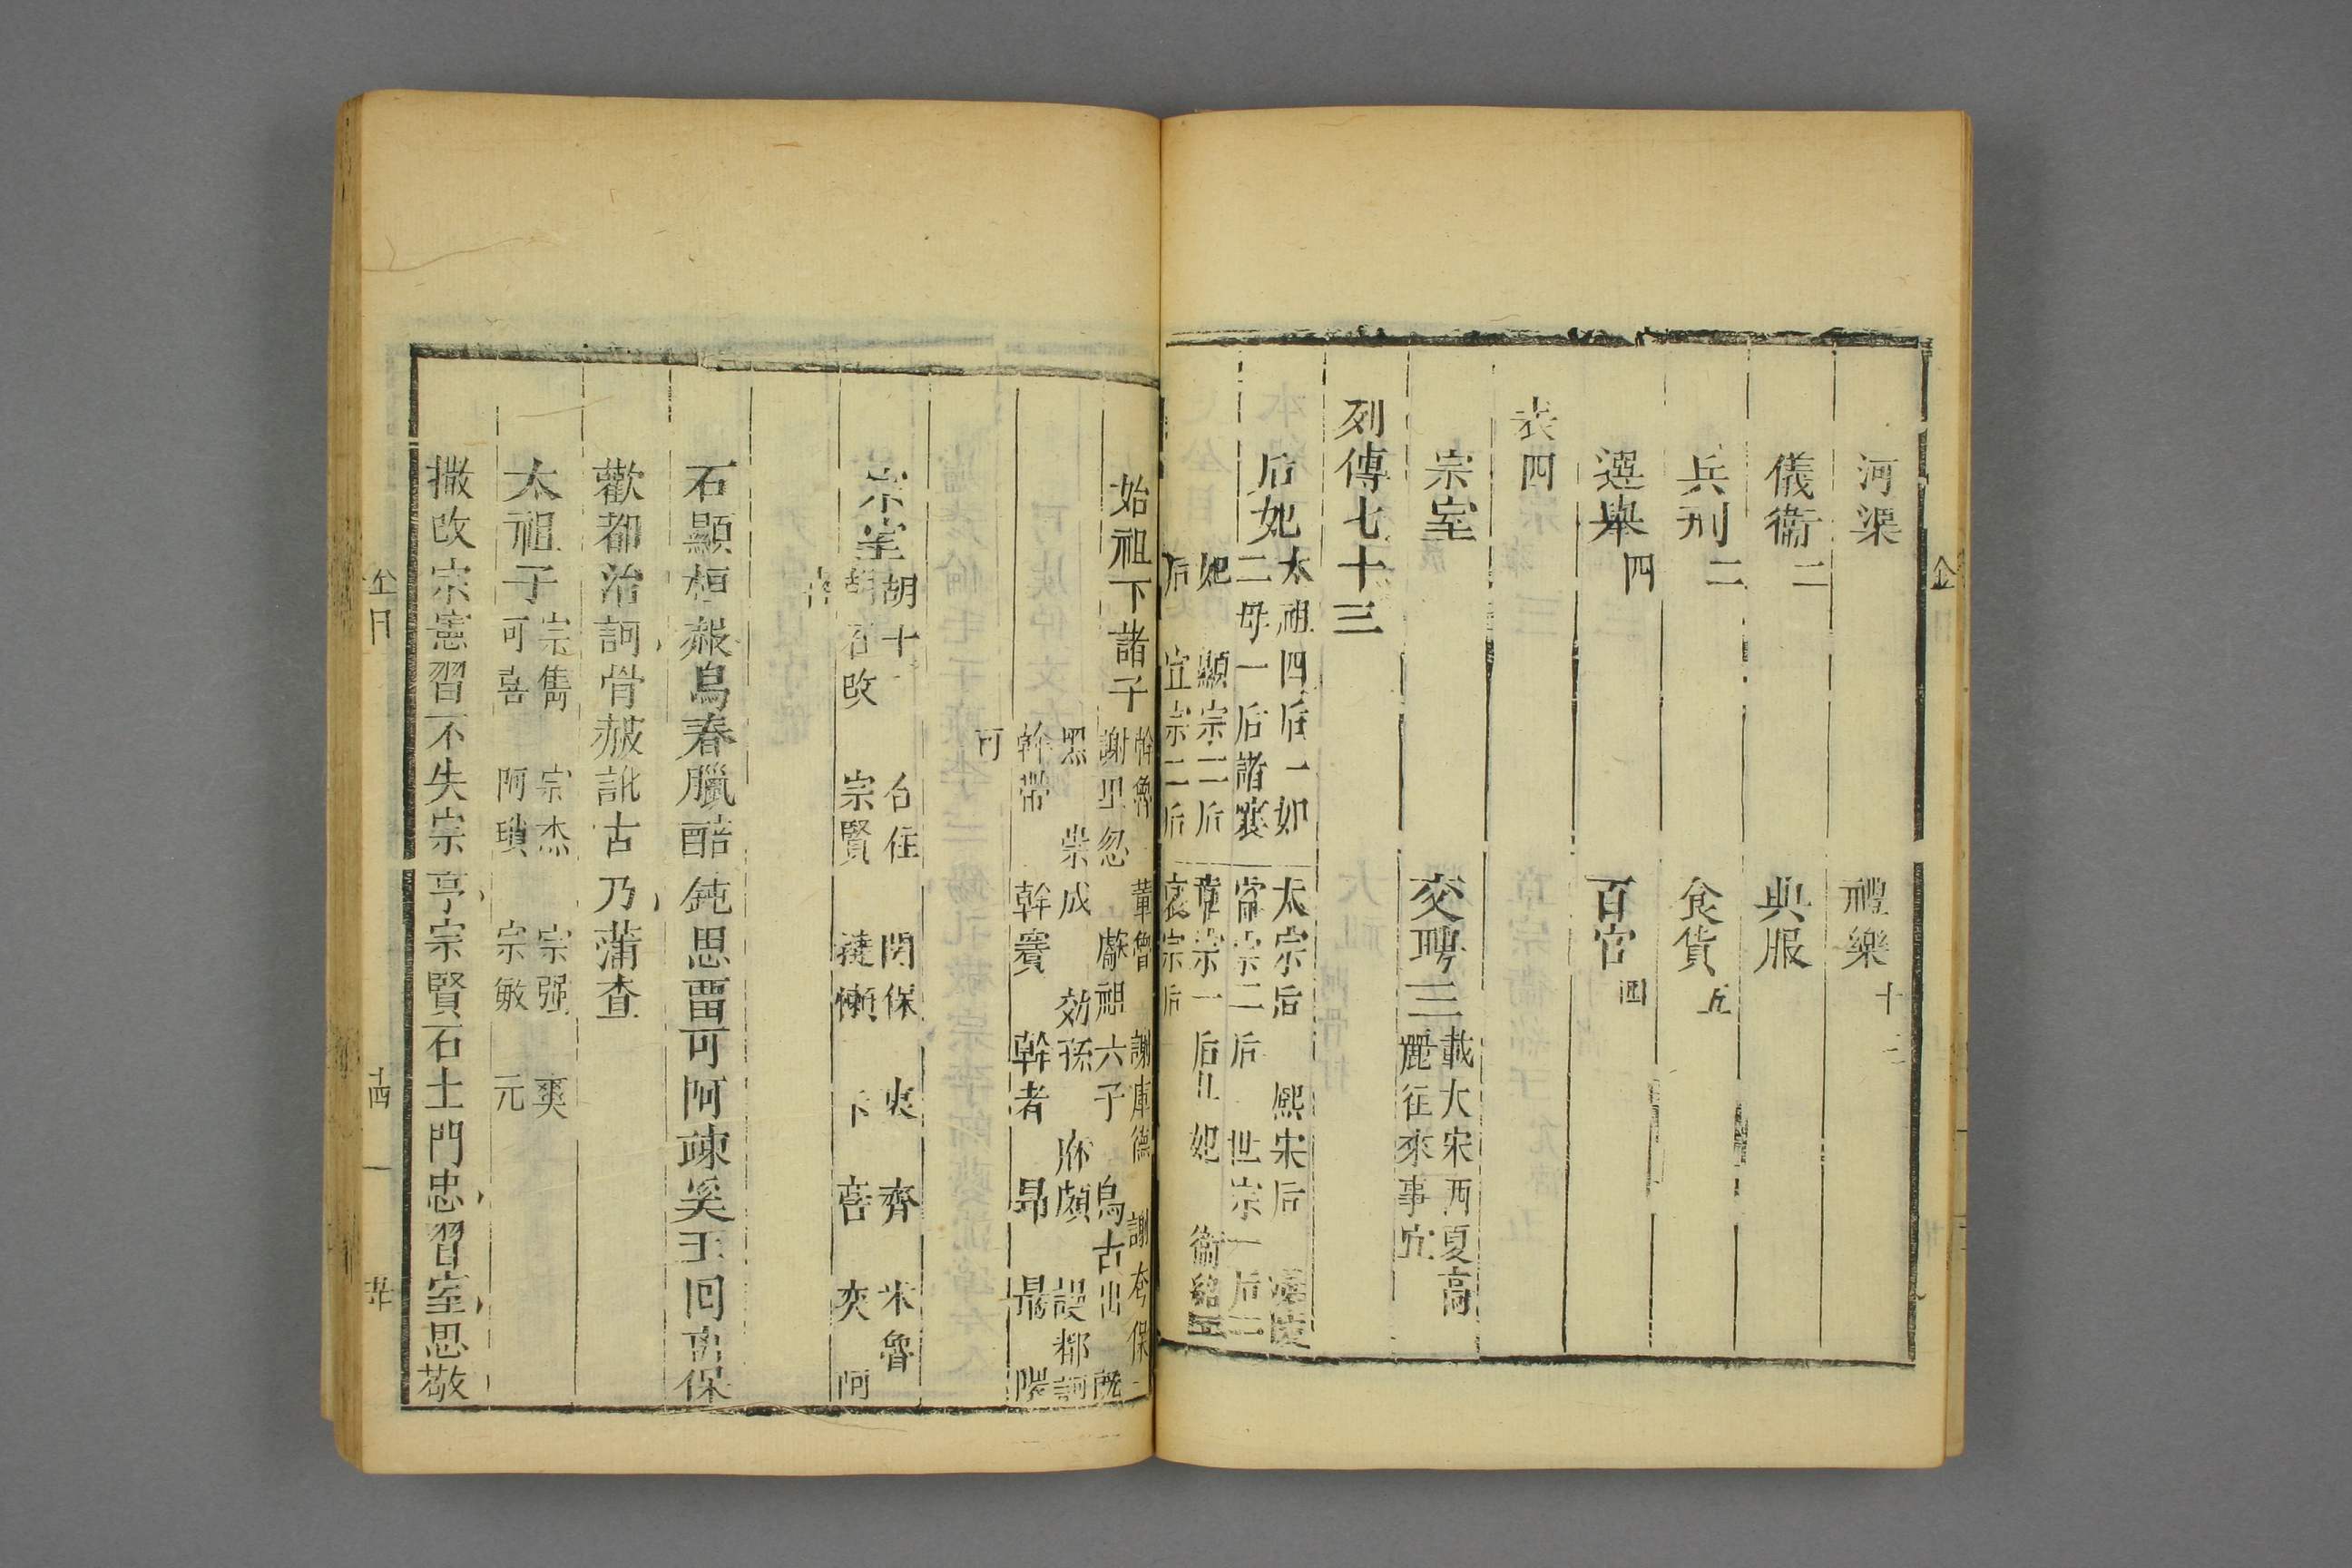 河渠　禮樂十一
儀衞二　典服
兵刑二　食貨五
選舉四　百官四
表四
宗室　交聘三載大宋西夏高
麗往來事宜
列傳七十三
后妃太祖四后一如　太宗后　熙宋后
二母一后諸襄　常宗二后　世宗一后二
妃　顯宗二后　章宗一后二妃　衞紹王
后　宣宗二后　哀宗后
始祖下諸子幹魯　輩魯　謝庫德　謝夸保
謝里忽　獻祖六子　烏古出
黑　崇成　効孫　麻頗　謾都訶
幹帶　幹賽　幹者　昂
可
宗室胡十　合住　闍保　夾　齊　米魯
胡石改　宗賢　撻懶　卞　喜　夾　阿
喜
石顯桓赧烏春臘醅鈍思畱可阿疎奚王回离保
歡都治訶骨赧訛古乃蒲查
太祖子宗雋　宗杰　宗强　爽
可喜　阿瑣　宗敏　元
撒改宗憲習不失宗亨宗賢石土門忠習室思敬
金目